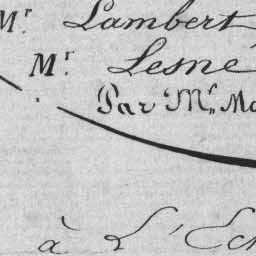 Mr Lambert
Mr Lesné
Par Mr. Mo
à L'Ech